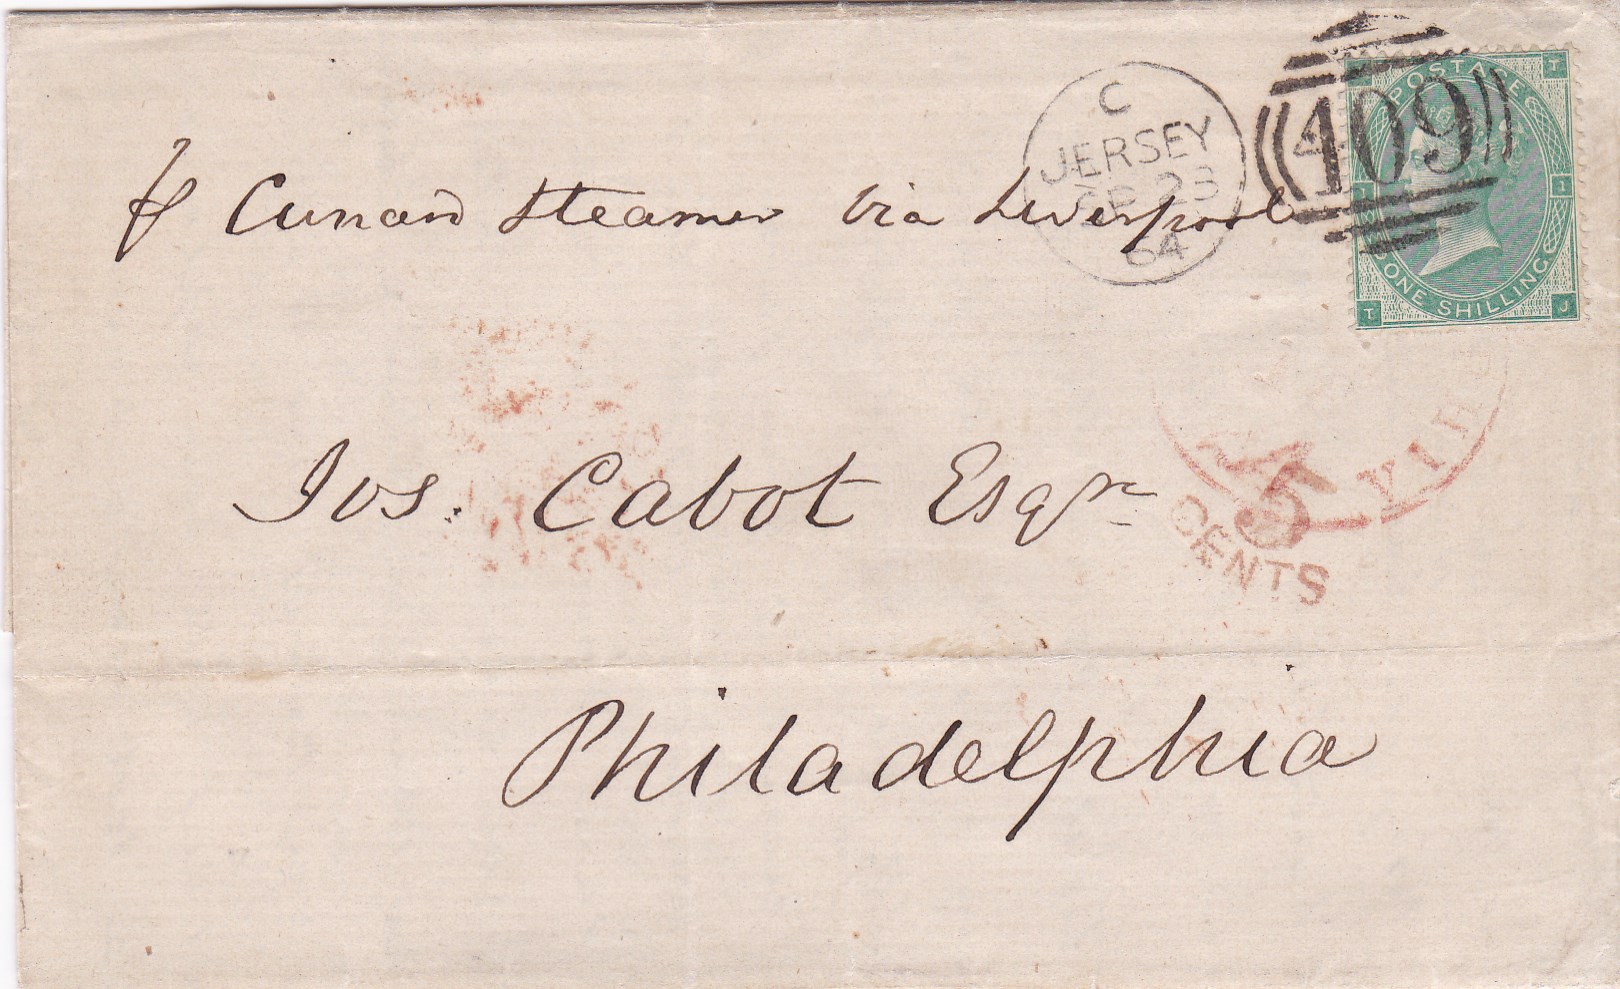 C
JERSEY
FE 23
64
409
POSTAGE
T
1 1
ONE SHILLING
T J
p Cunard Steamer via Liverpool
Jos. Cabot Esqre
5
CENTS
Philadelphia